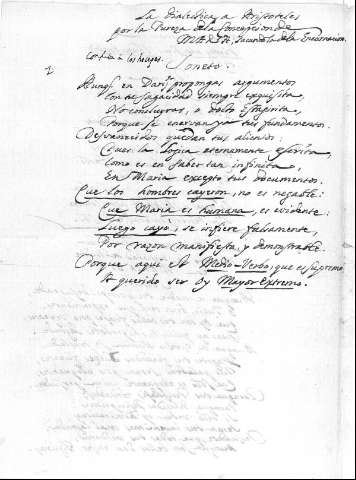 La Dialectica, a Aristoteles
por la Pureza de la Concepcion de
MARIA, Jurando la de la Encarnacion.
Cortada a los
Soneto.
1
Aunq en Darij propongas argumentos
Con tu sagacidad siempre exquisita,
No concluyras, o docto Estagirita,
Porque se enervan ya tus fundamentos.
Desvanecidos quedan tus alientos
Pues la logica eternamente escrita,
Como es en saber tan infinita,
En Maria excepto tus documentos.
Que los hombres cayeron, no es negable:
Que Maria es humana, es evidente:
Luego cayò, se infiere falsamente,
Por razon manifiesta, y demonstrable.
Porque aqui el Medio-Verbo, que es supremo
A querido ser oy Mayor Extremo.